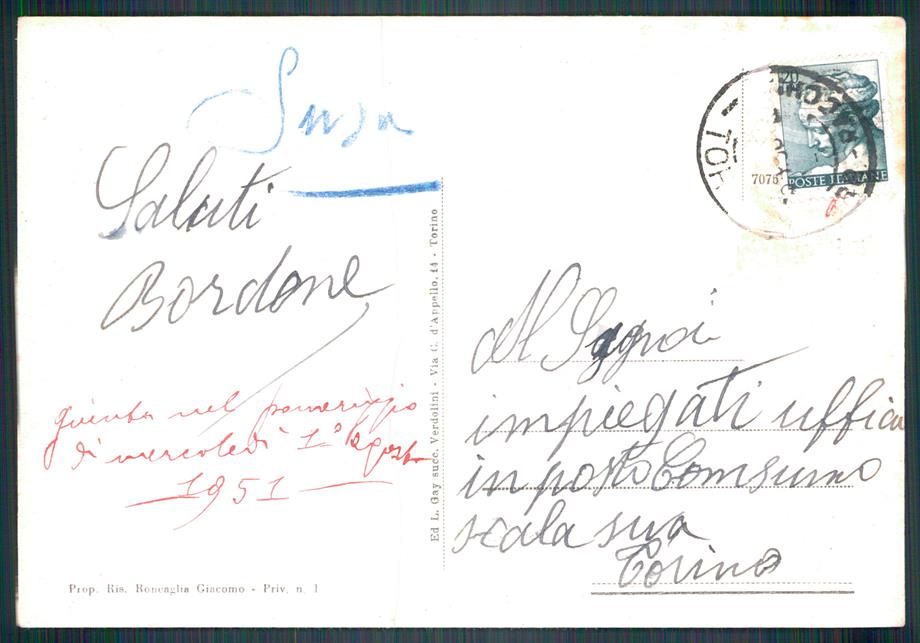 Susa
Saluti
Bordone
giunta nel pomeriggio
di mercoledì 1° agosto
1951
Prop. Ris. Roncaglia Giacomo - Priv. n. 1
Ed L. Gay succ. Verdolini - Via C. d'Appello, 14 - Torino
20
7075
POSTE ITALIANE
impiegati uffici
in posto Comsumo
scala sua
Torino